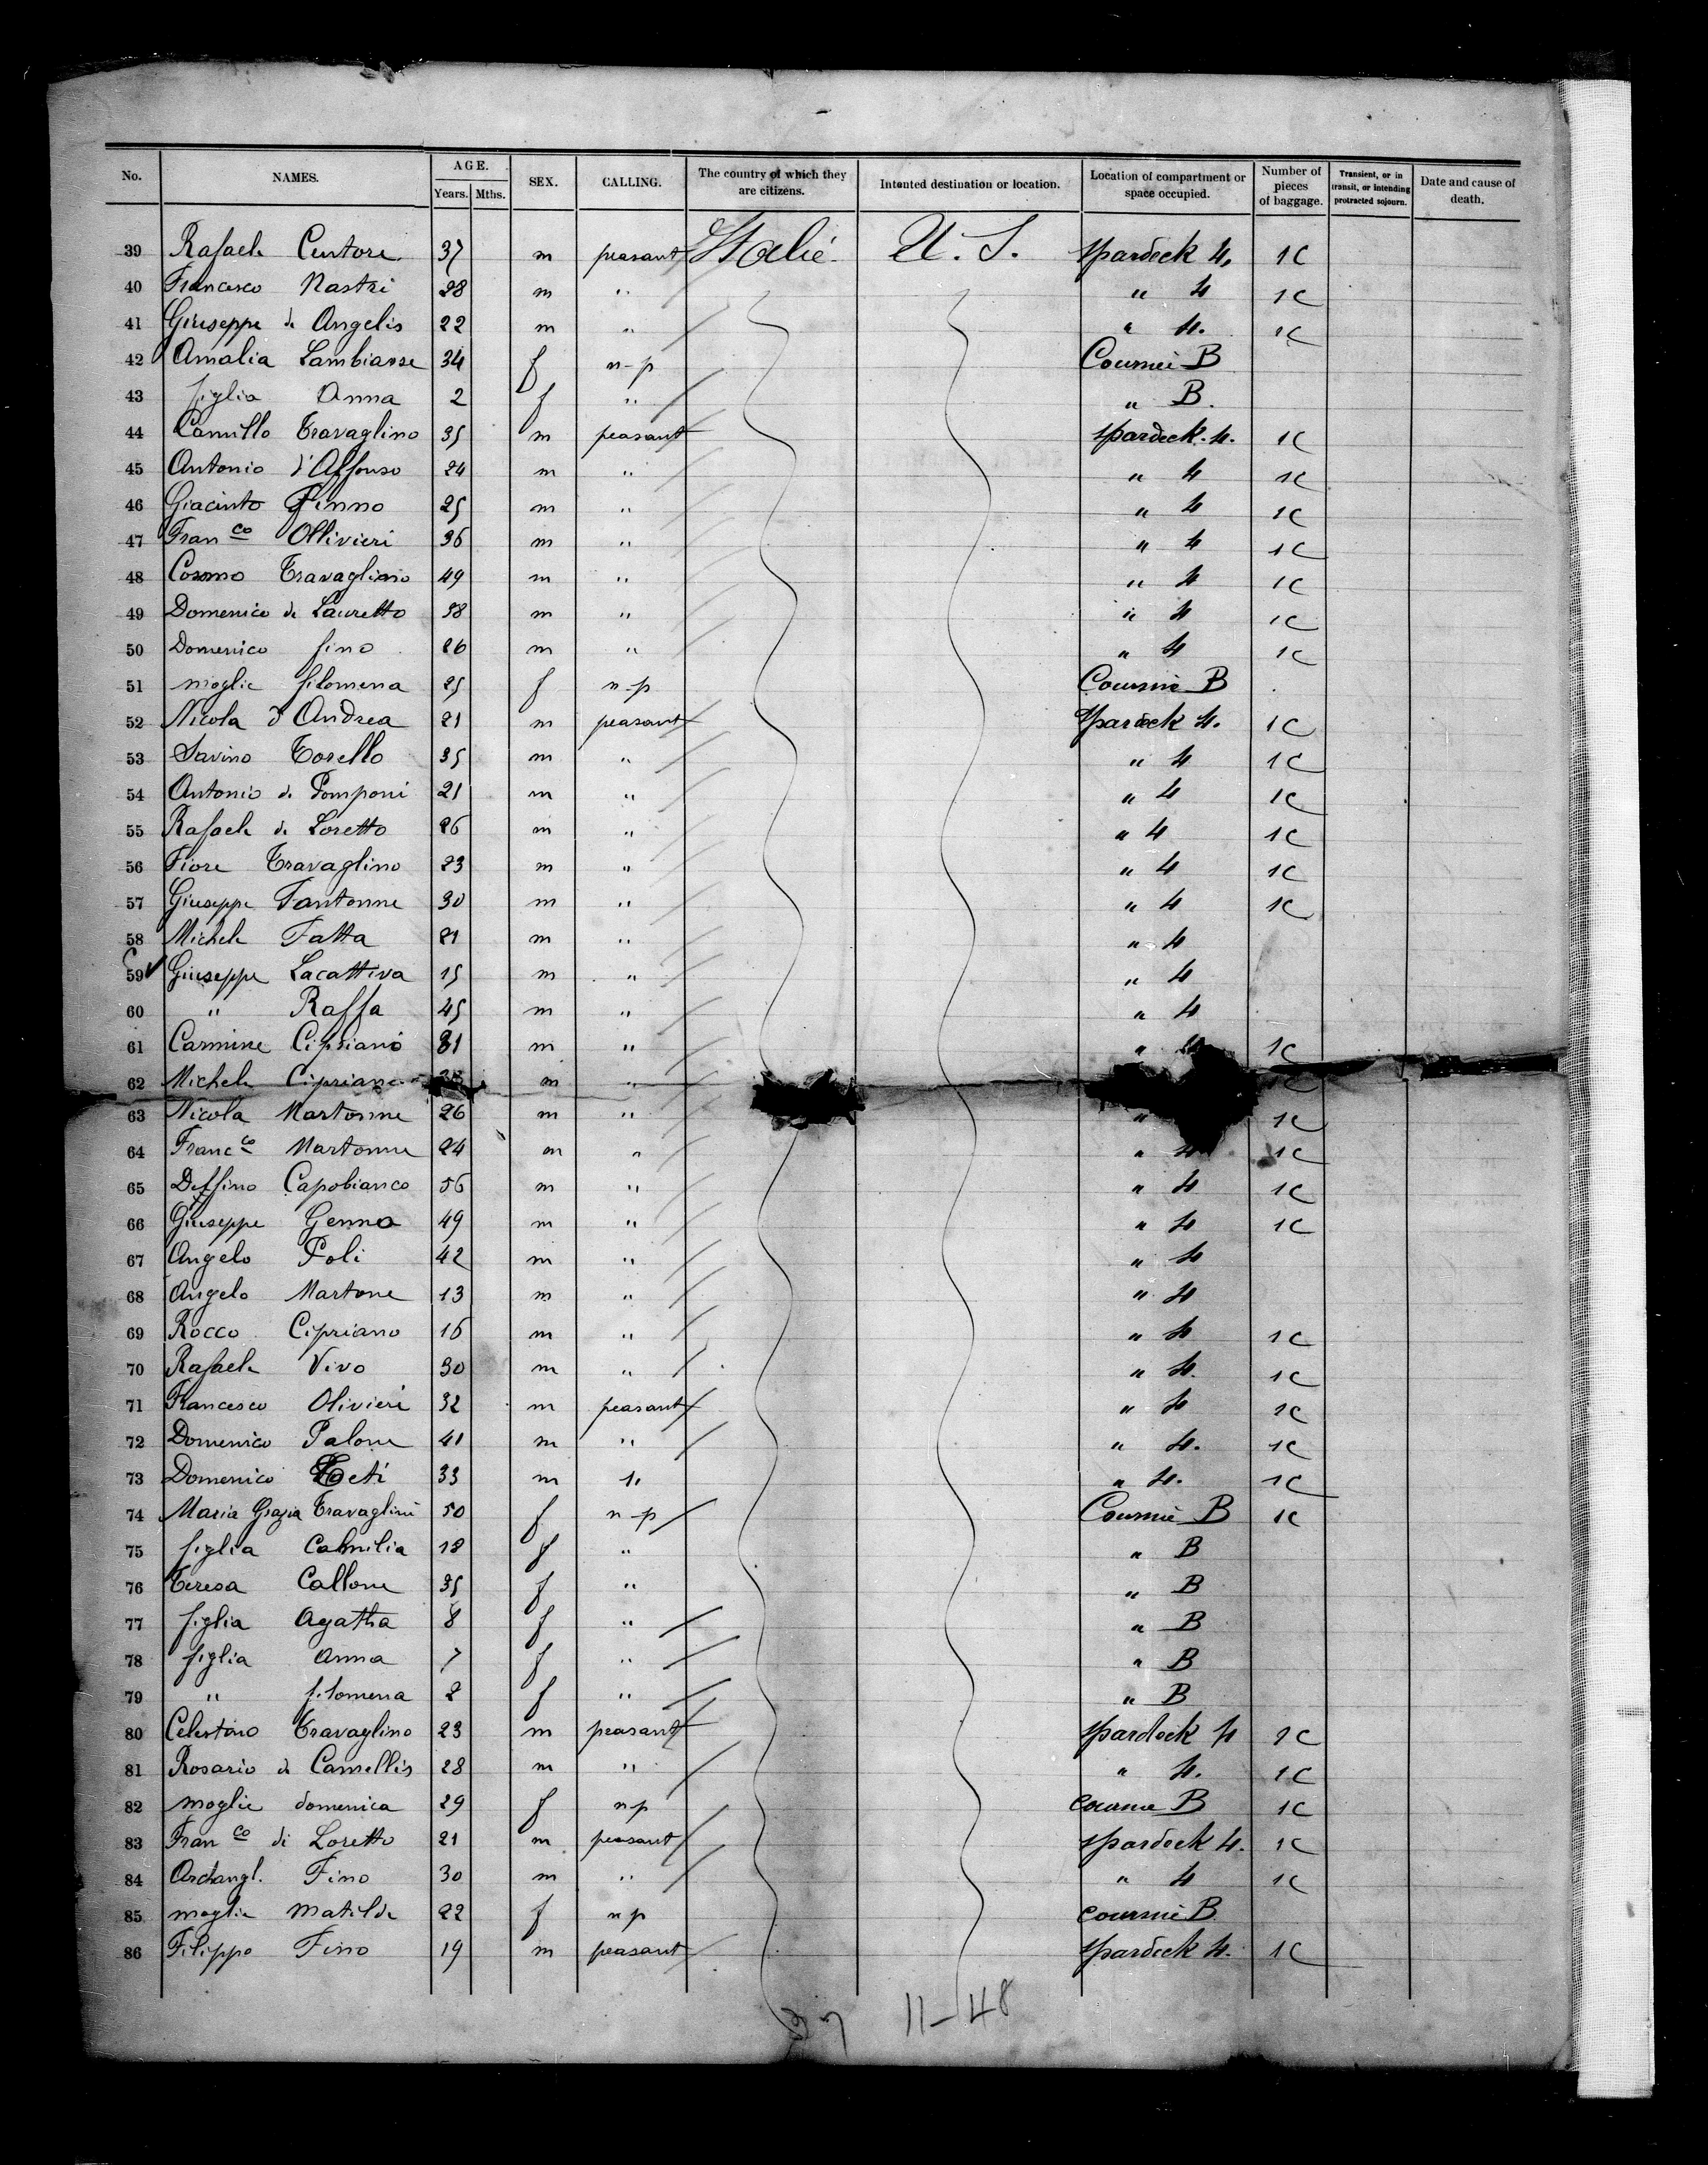 No. NAMES. AGE. Years. Mths. SEX. CALLING. The country of which they are citizens. Intented destination or location. Location of compartment or space occupied. Number of pieces of baggage. Transient, or in transit, or intending protracted sojourn. Date and cause of death.
39 Rafaele Centore 37 m peasant Italie U. S. spardeck 4. 1C
40 Francesco Nastri 28 m " " 4 1C
41 Giuseppe de Angelis 22 m " " 4. 1C
42 Amalia Lambiasse 34 f n-p Coursie B
43 figlia Anna 2 f " " B.
44 Camillo Travaglino 35 m peasant spardeck. 4. 1C
45 Antonio d'Affonso 24 m " " 4 1C
46 Giacinto Pinno 25 m " " 4 1C
47 Franco Ollivieri 36 m " " 4 1C
48 Cosmo Travagliano 49 m " " 4 1C
49 Domenico de Lauretto 38 m " " 4 1C
50 Domenico fino 26 m " " 4 1C
51 moglie filomena 25 f n-p Coursie B
52 Nicola d'Andrea 21 m peasant spardeck 4. 1C
53 Savino Torello 35 m " " 4 1C
54 Antonio de Pomponi 21 m " " 4 1C
55 Rafaele de Loretto 26 m " " 4 1C
56 Fiore Travaglino 23 m " " 4 1C
57 Giuseppe Fantonne 30 m " " 4 1C
58 Michele Fatta 21 m " " 4
59 Giuseppe Lacattiva 15 m " " 4
60 " Raffa 45 m " " 4
61 Carmine Cipriano 31 m " " 4 1C
62 Michele Cipriano m " 1C
63 Nicola Martonne 26 m " " 1C
64 Francco Martonne 24 m " " 4 1C
65 Delfino Capobianco 56 m " " 4 1C
66 Giuseppe Genna 49 m " " 4 1C
67 Angelo Poli 42 m " " 4
68 Angelo Martone 13 m " " 4
69 Rocco Cipriano 16 m " " 4 1C
70 Rafaele Vivo 30 m " " 4. 1C
71 Francesco Olivieri 32 m peasant " 4 1C
72 Domenico Palone 41 m " " 4. 1C
73 Domenico Teti 33 m " " 4. 1C
74 Maria Grazia Travaglini 50 f n-p Coursie B 1C
75 figlia Camilia 18 f " " B
76 Teresa Callone 35 f " " B
77 figlia Agatha 8 f " " B
78 figlia Anna 7 f " " B
79 " filomena 2 f " " B
80 Celestino Travaglino 23 m peasant spardeck 4 1C
81 Rosario de Camellis 28 m " " 4. 1C
82 moglie domenica 29 f n p coursie B 1C
83 Franco di Loretto 21 m peasant spardeck 4. 1C
84 Archangl. Fino 30 m " " 4 1C
85 moglie Matilde 22 f n p coursie B
86 Filippo Fino 19 m peasant spardeck 4. 1C
11-48